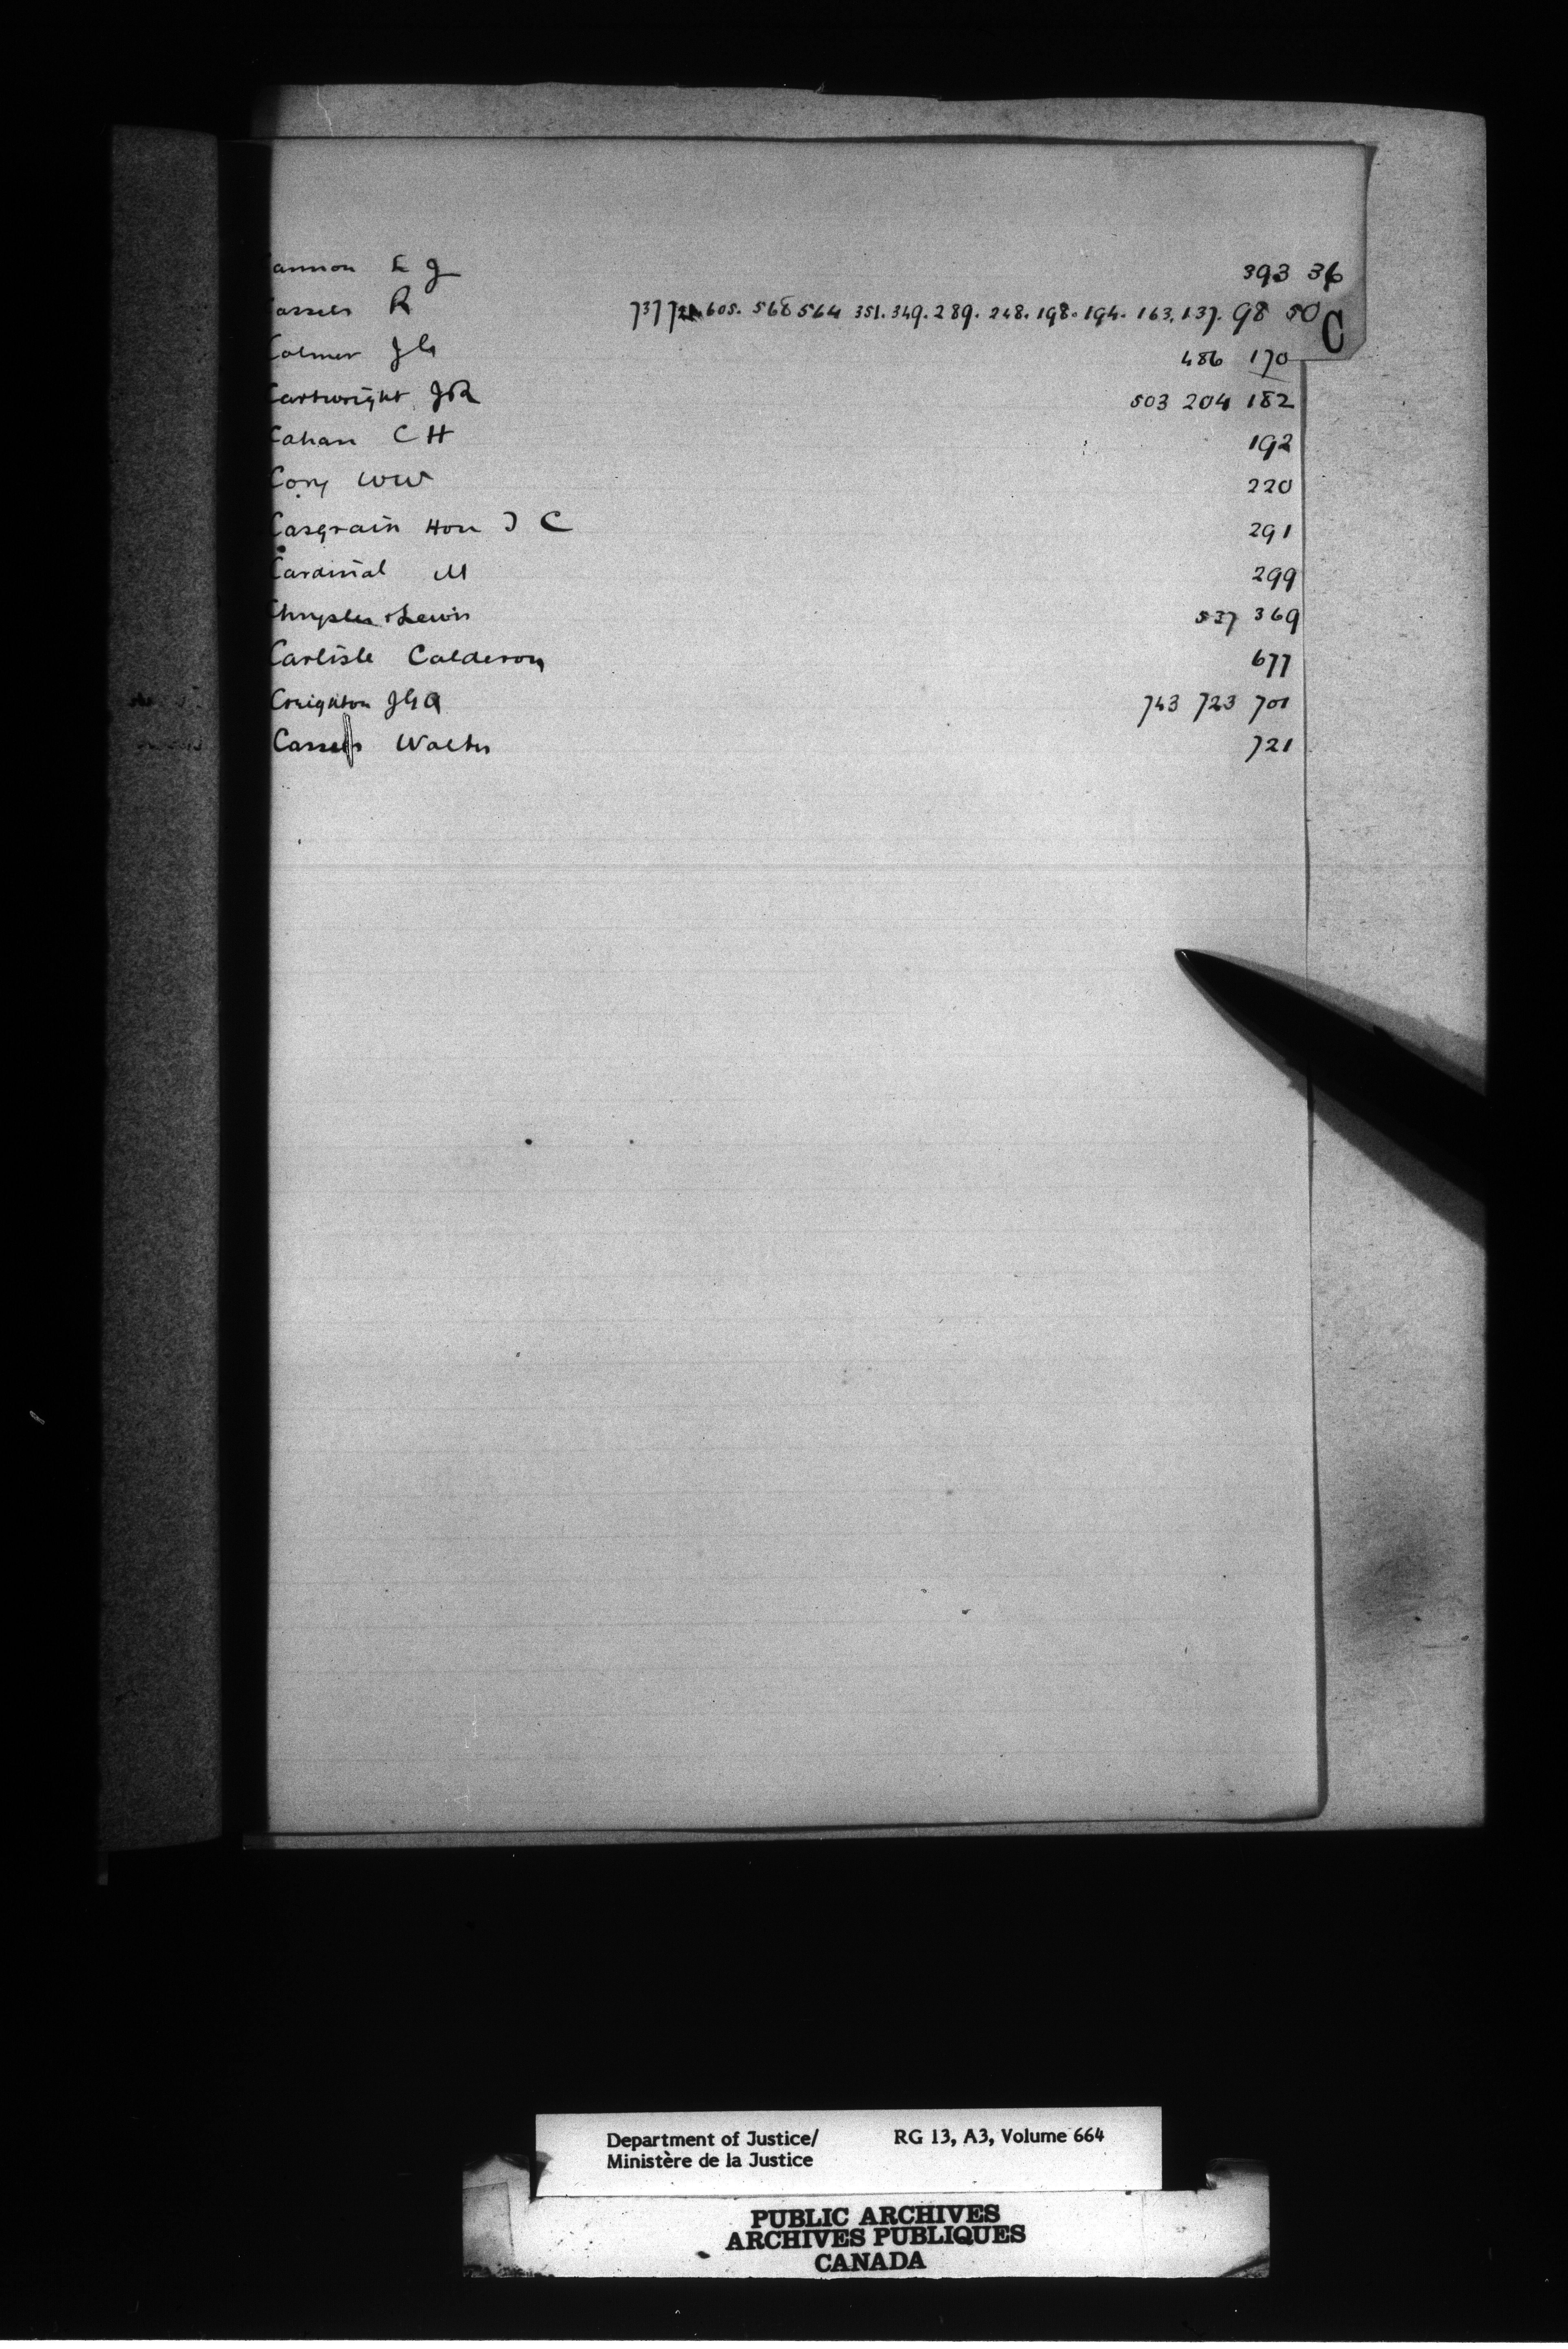 annon E J 393 36
assels R 737 721. 605. 568 564 351. 349. 289. 248. 198. 194. 163. 137. 98 50
C
Colmer J G 486 170
Cartwright J R 503 204 182
Cahan C H 192
Cory W W 220
Casgrain Hon J C 291
Cardinal M 299
Chrysler & Lewis 537 369
Carlisle Calderon 677
Creighton J G A 743 723 701
Cassels Walter 721
Department of Justice/ RG 13, A3, Volume 664
Ministère de la Justice
PUBLIC ARCHIVES
ARCHIVES PUBLIQUES
CANADA